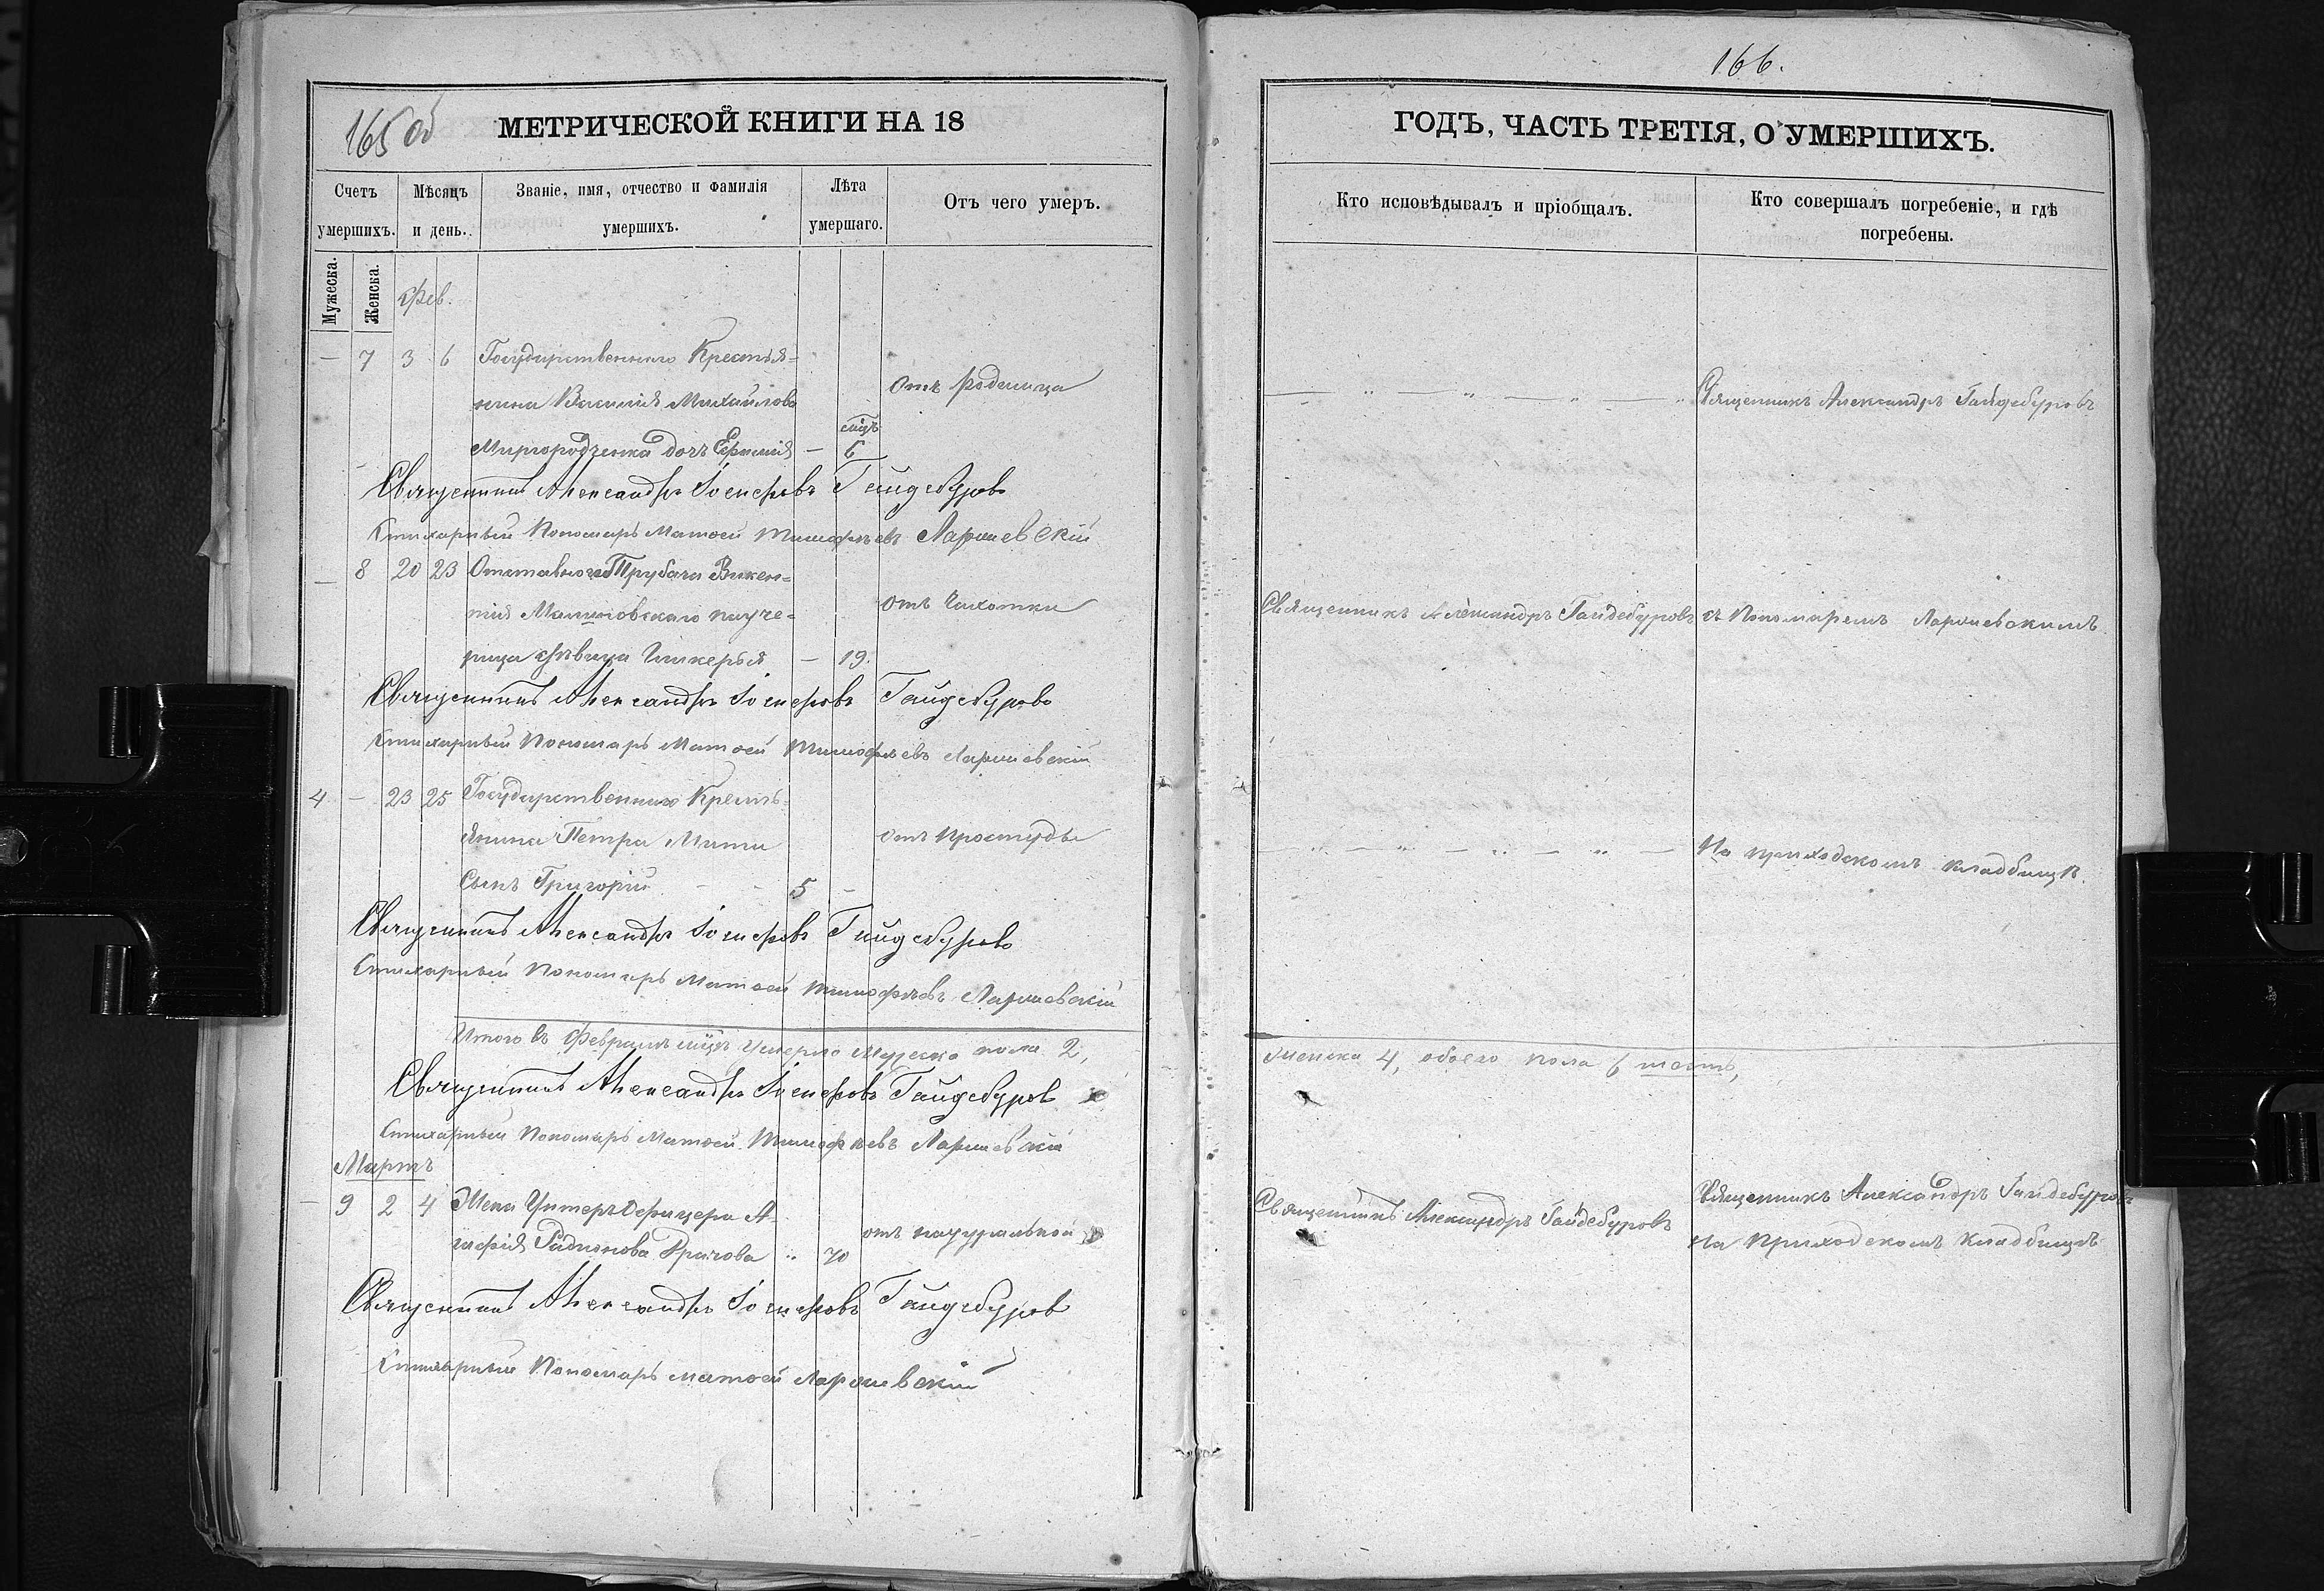 165 об
МЕТРИЧЕСКОЙ КНИГИ НА 18
Счетъ умершихъ.
Мѣсяцъ и день.
Званіе, имя, отчество и фамилія умершихъ.
Лѣта умершаго.
Отъ чего умеръ.
Мужеска.
Женска.
Фев.
— 7 3 6 Государственнаго Крестья=
нина Василія Михайлова
Отъ родимца
Миргородченка дочь Ефимія — 6
Священникъ Александръ Іосифовъ Гайдебуровъ
Стихарный Пономарь Матѳей Тимофѣевъ Ларшевскій
— 8 20 23 Отставнаго Трубача Викен=
тія Малиновскаго
отъ Чахотки
дѣвица Гликерія — 19.
Священникъ Александръ Іосифовъ Гайдебуровъ
Стихарный Пономарь Матѳей Тимофѣевъ Ларшевскій
4 — 23 25 Государственнаго Кресть=
янина Петра
отъ простуды
Сынъ Григорій - - 5 -
Священникъ Александръ Іосифовъ Гайдебуровъ
Стихарный Пономарь Матѳей Тимофѣевъ Ларшевскій
Итого въ Февралѣ мцѣ умерло Мужеска пола 2,
Священникъ Александръ Іосифовъ Гайдебуровъ
Стихарный Пономарь Матѳей Тимофѣевъ Ларшевскій
Мартъ
— 9 2 4 Жена Унтеръ Офицера А=
гафія Радионова .. 70
отъ натуральной
Священникъ Александръ Іосифовъ Гайдебуровъ
Стихарный Пономарь Матѳей Ларшевскій
166.
ГОДЪ, ЧАСТЬ ТРЕТІЯ, О УМЕРШИХЪ.
Кто исповѣдывалъ и пріобщалъ.
Кто совершалъ погребеніе, и гдѣ погребены.
— „ — „ — „ — „ Священникъ Александръ Гайдебуровъ
Священникъ Александръ Гайдебуровъ съ Пономаремъ Ларшевскимъ
— „ — „ — „ — „ — На приходскомъ кладбищѣ.
женска 4, обоего пола 6 шесть,
Священникъ Александръ Гайдебуровъ
Священникъ Александръ Гайдебуровъ
На приходскомъ кладбищѣ